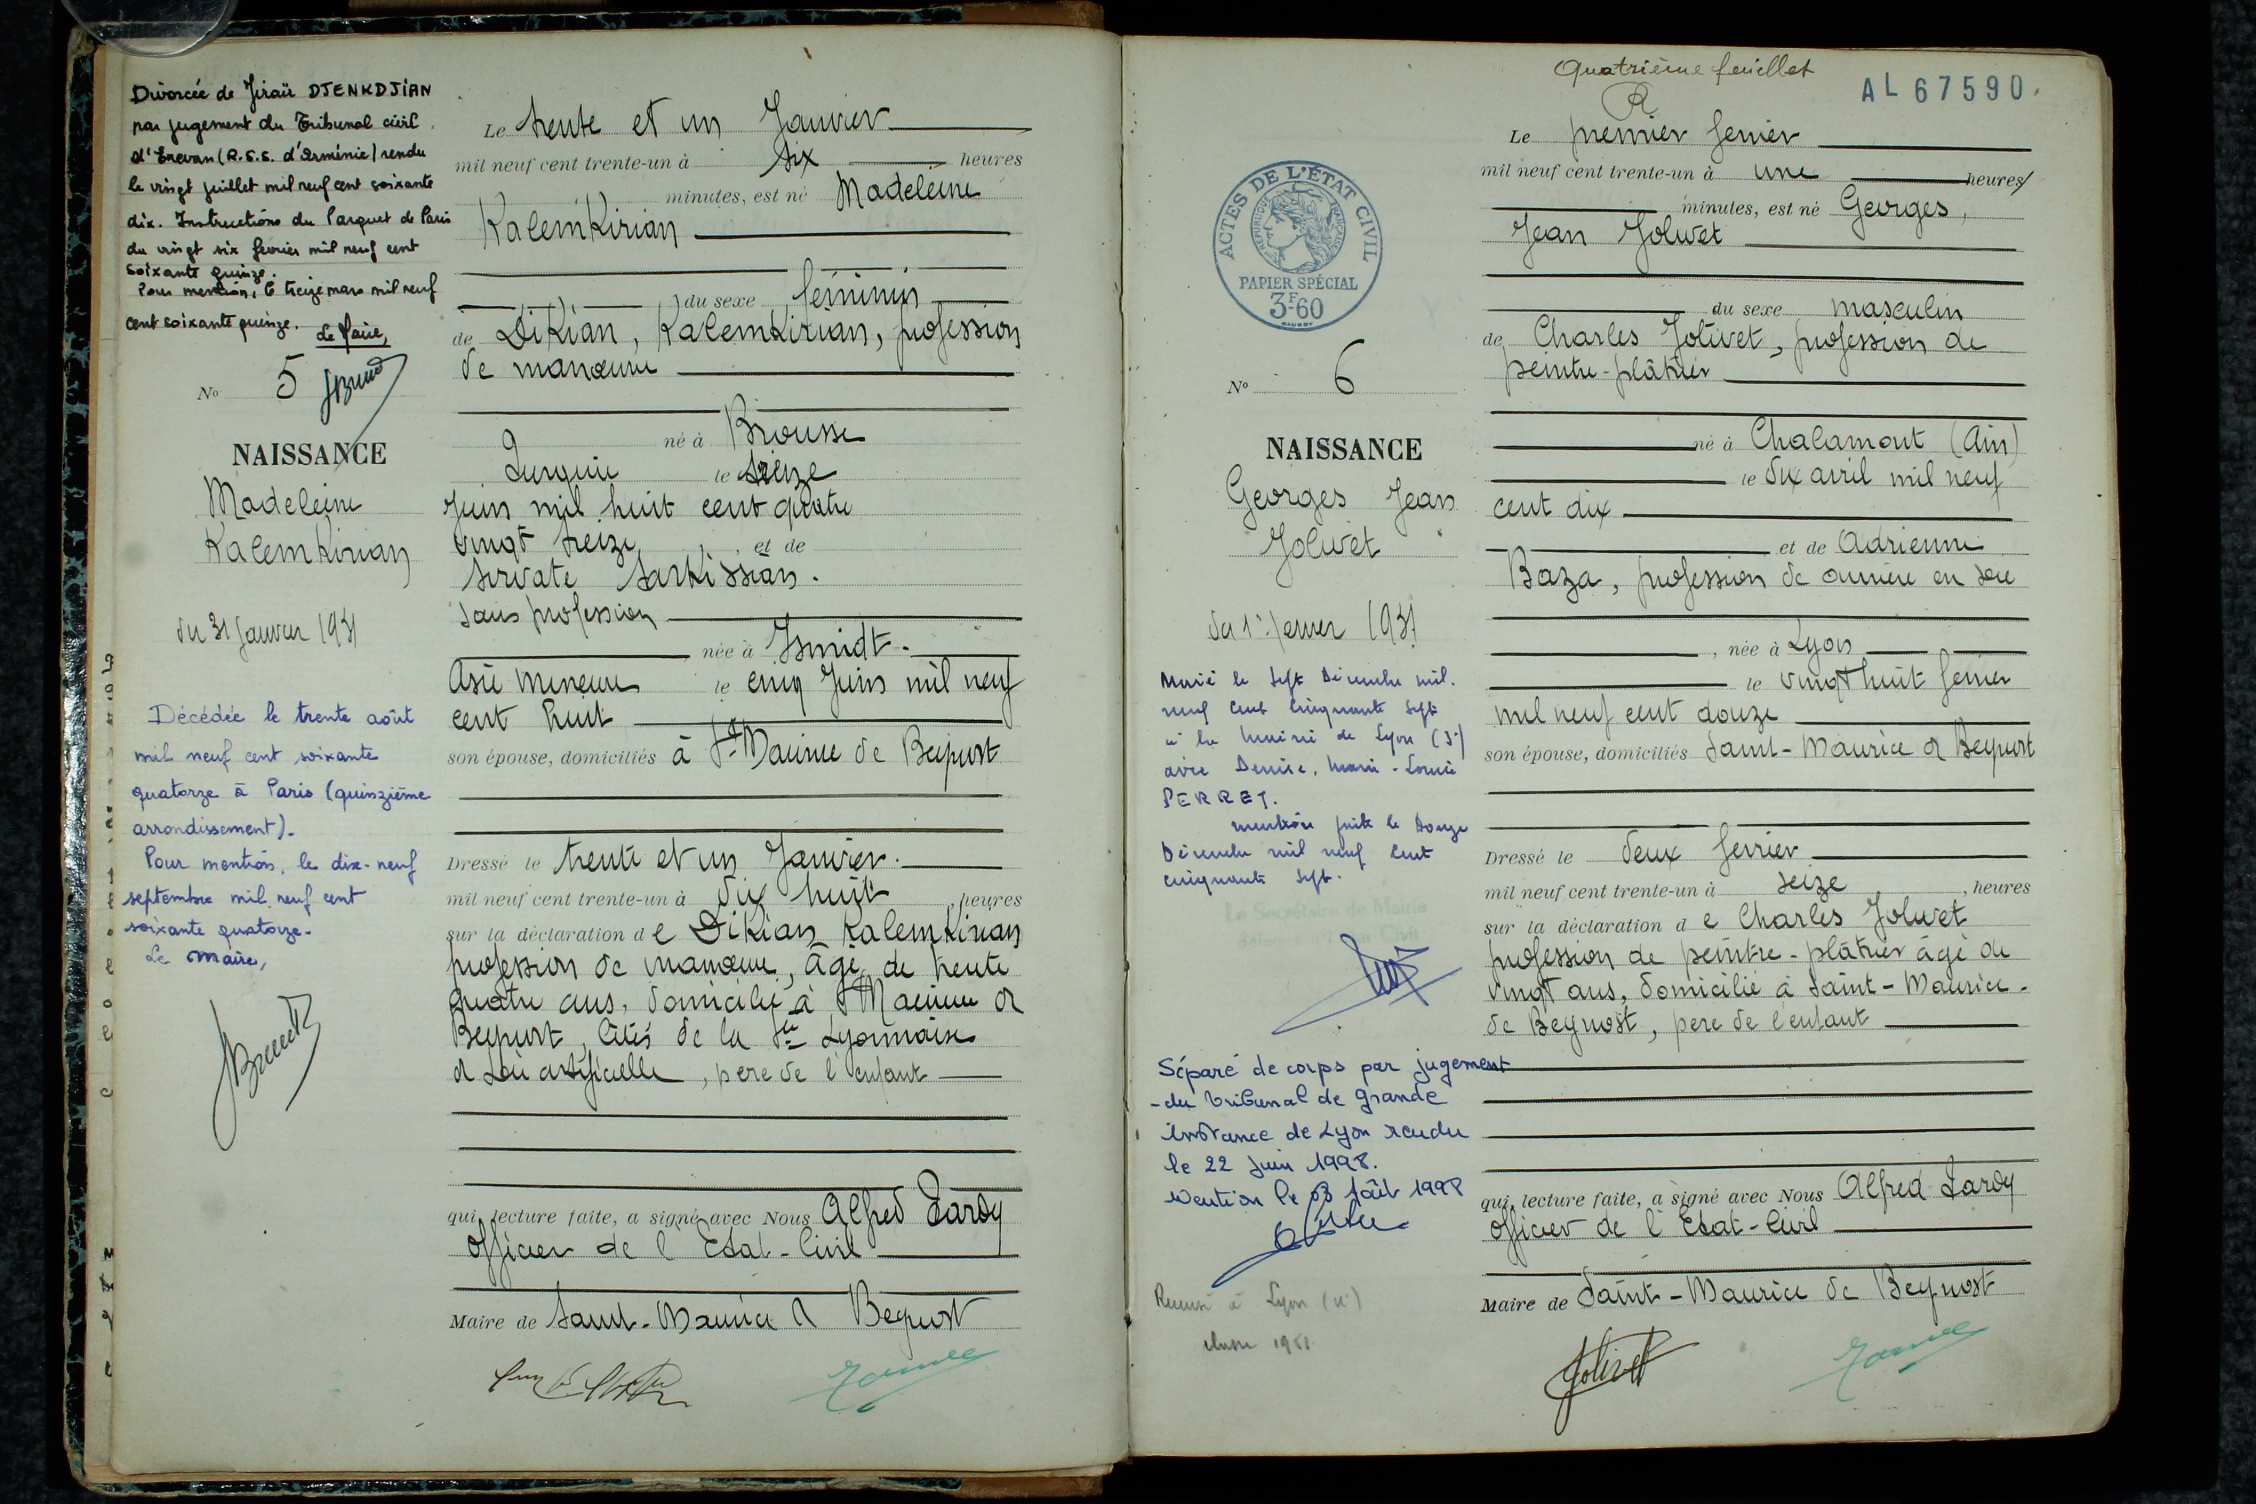 Divorcée de Jiraïr DJENKDJIAN
par jugement du Tribunal civil
d'Erevan (R.S.S. d'Arménie) rendu
le vingt juillet mil neuf cent soixante
dix. Instructions du Parquet de Paris
du vingt six février mil neuf cent
soixante quinze.
Pour mention, le treize mars mil neuf
cent soixante quinze.
Le Maire,
No 5
NAISSANCE
Madeleine
Kalemkirian
du 31 Janvier 1931
Décédée le trente août
mil neuf cent soixante
quatorze à Paris (quinzième
arrondissement).
Pour mention, le dix-neuf
septembre mil neuf cent
soixante quatorze.
Le Maire,
Le trente et un Janvier
mil neuf cent trente-un à six heures
minutes, est né Madeleine
Kalemkirian
du sexe féminin
de Dikian, Kalemkirian, profession
de manœuvre
né à Brousse
Turquie le
Juin mil huit cent quatre
vingt treize et de
Sirvate Sarkissian.
sans profession
née à Ismidt.
Asie Mineure le cinq Juin mil neuf
cent huit
son épouse, domiciliés à St Maurice de Beynost
Dressé le trente et un Janvier.
mil neuf cent trente-un à dix huit heures
sur la déclaration de Dikian Kalemkirian
profession de manœuvre, âgé de trente
quatre ans, domicilié à St Maurice de
Beynost, Cités de la Sté Lyonnaise
de Soie artificielle, père de l'enfant
qui, lecture faite, a signé avec Nous Alfred Tardy
officier de l'Etat-Civil
Maire de Saint-Maurice de Beynost
Quatrième feuillet
AL 67590
ACTES DE L'ÉTAT CIVIL
RÉPUBLIQUE FRANÇAISE
PAPIER SPÉCIAL
3F-60
No 6
NAISSANCE
Georges Jean
Jolivet
du 1er février 1931
Marié le sept Décembre mil
neuf cent cinquante sept
à la mairie de Lyon (3e)
avec Denise, Marie-Louise
PERRET.
mention faite le douze
Décembre mil neuf cent
cinquante sept.
Le Secrétaire de Mairie
Séparé de corps par jugement
du Tribunal de Grande
instance de Lyon rendu
le 22 juin 1998.
Mention le 03 Août 1998
Lyon
Le premier février
mil neuf cent trente-un à une heures
minutes, est né Georges,
Jean Jolivet
du sexe masculin
de Charles Jolivet, profession de
peintre-plâtrier
né à Chalamont (Ain)
le dix avril mil neuf
cent dix
et de Adrienne
Baza, profession de ouvrière en soie
, née à Lyon
le vingt huit février
mil neuf cent douze
son épouse, domiciliés Saint-Maurice de Beynost
Dressé le deux février
mil neuf cent trente-un à seize, heures
sur la déclaration de Charles Jolivet
profession de peintre-plâtrier âgé de
vingt ans, domicilié à Saint-Maurice-
de Beynost, père de l'enfant
qui, lecture faite, a signé avec Nous Alfred Tardy
officier de l'Etat-Civil
Maire de Saint-Maurice de Beynost
Jolivet